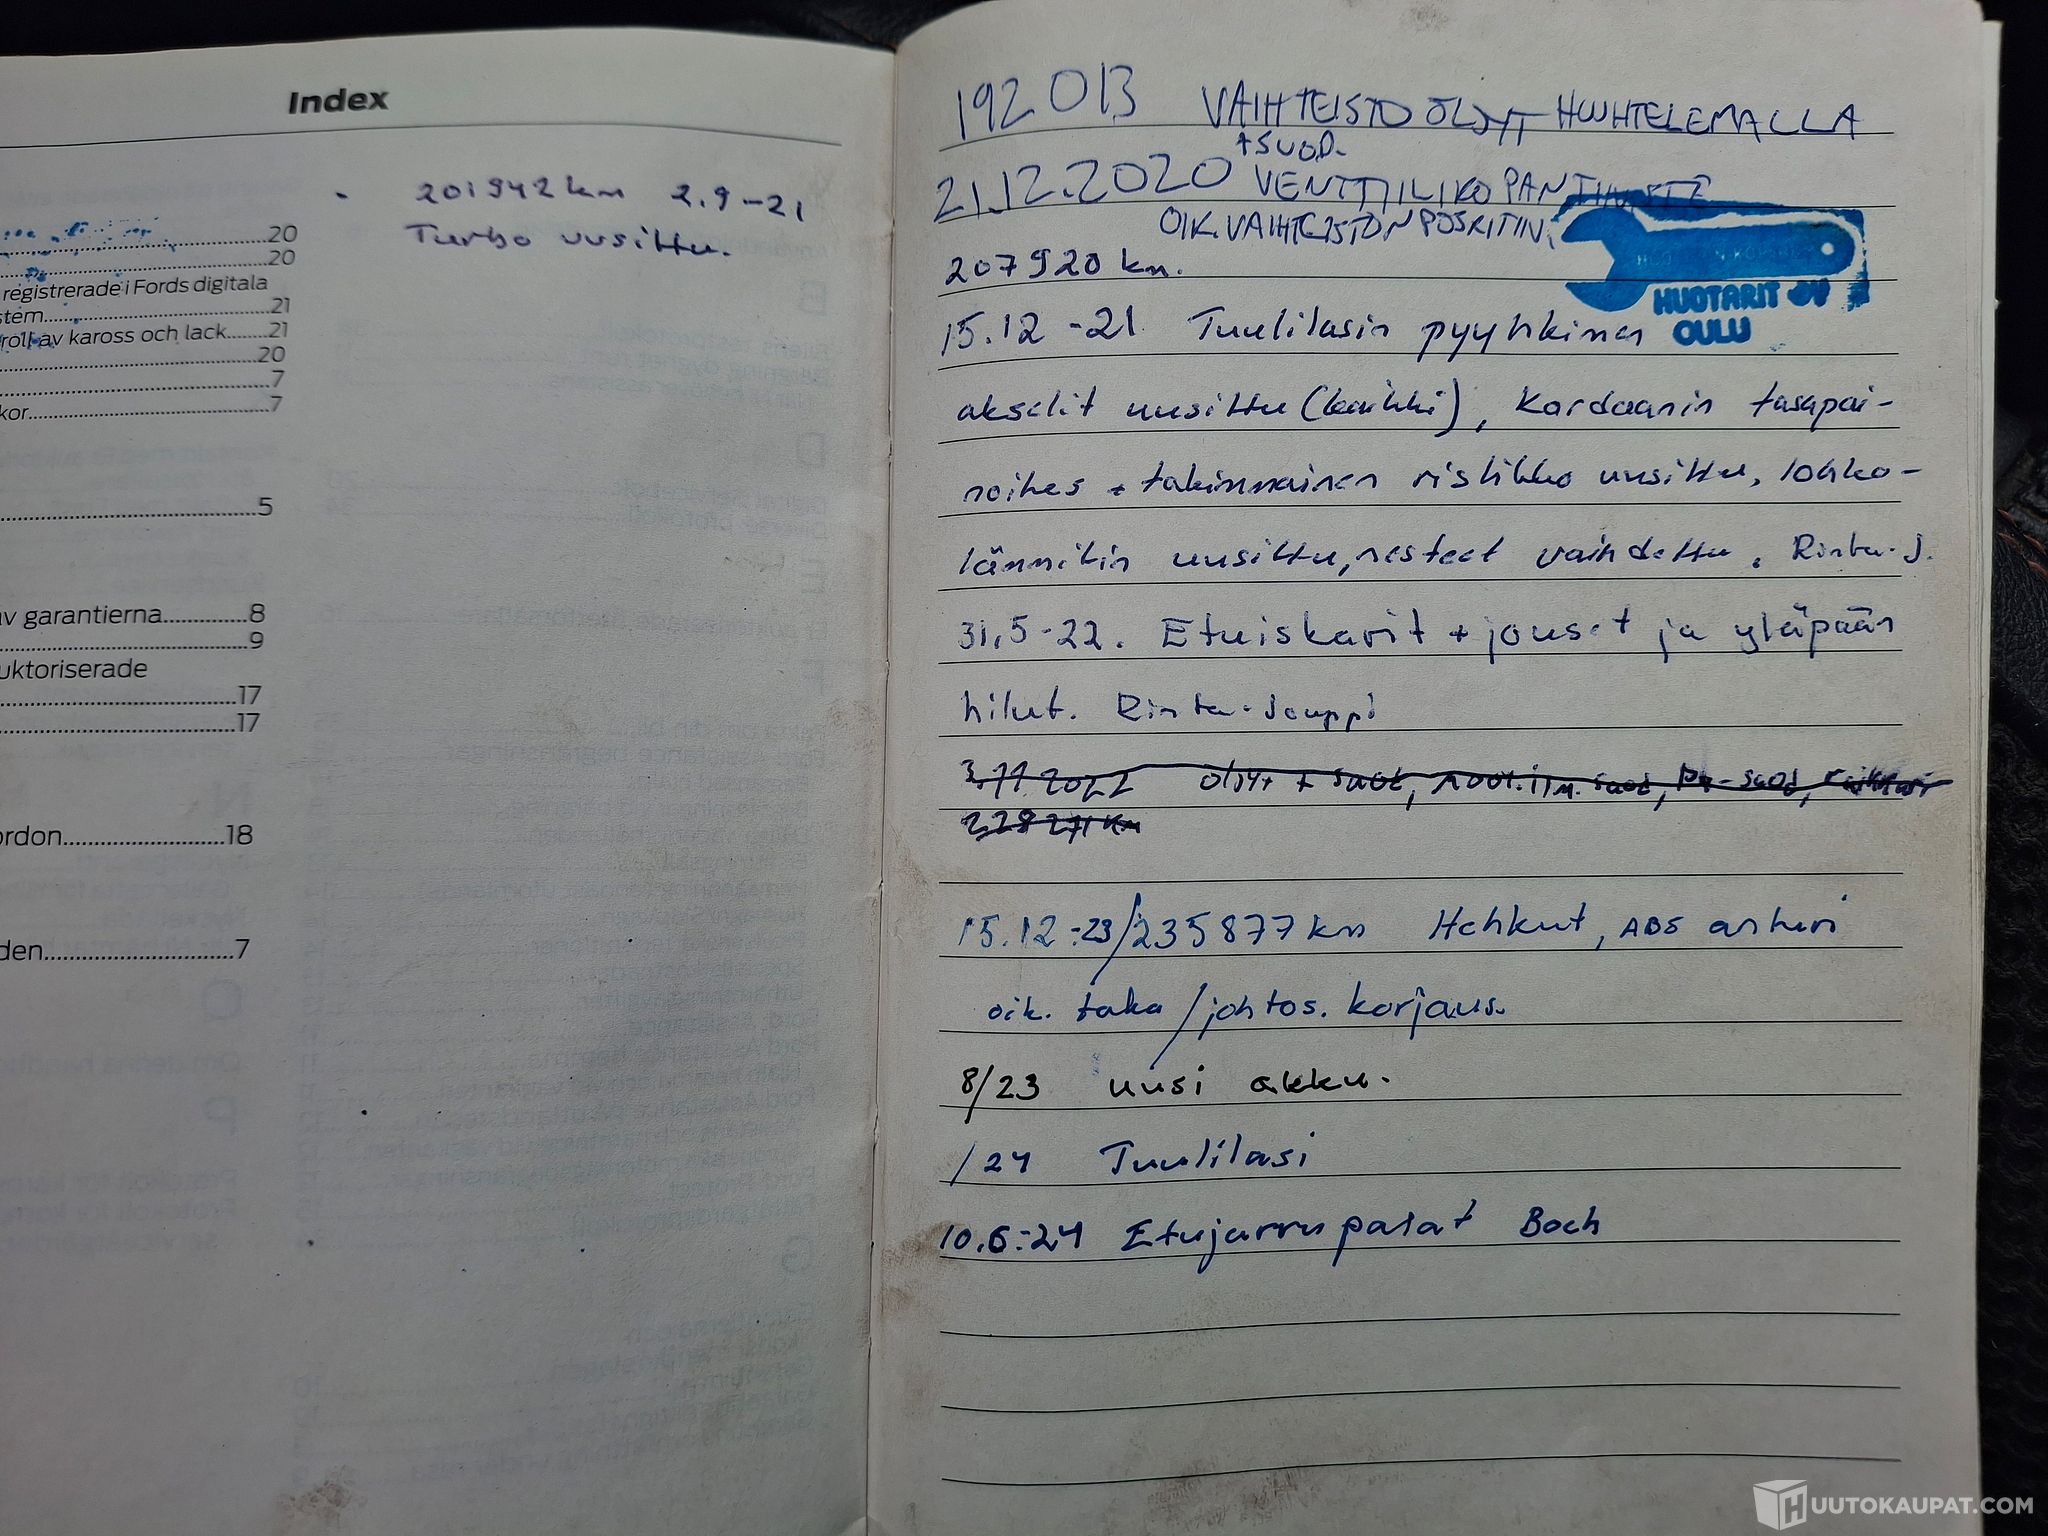 Index
20
20
registrerade i Fords digitala
stem 21
roll av kaross och lack 21
20
7
kor 7
5
av garantierna 8
9
uktoriserade
17
17
ordon 18
den 7
201942 km 2.9-21
Turbo uusittu.
192 013 VAIHTEISTO ÖLJYT HUUHTELEMALLA
+SUOD.
21.12.2020 VENTTIILIKOPAN
OIK. VAIHTEISTON
207920 km.
HUOTARIT OY
OULU
15.12-21 Tuulilasin pyyhkimen
akselit uusittu (kaikki), Kardaanin tasapai-
noitus + takimmainen ristikko uusittu, lohko-
lämmitin uusittu, nesteet vaihdettu. Rinta-J.
31.5-22. Etuiskarit + jouset ja yläpään
hilut. Rinta-Jouppi
2022 öljyt + suod,
228 271 km
15.12-23/235877 km Hehkut, ABS anturi
oik. taka / johtos. korjaus.
8/23 uusi akku.
/24 Tuulilasi
10.6-24 Etujarrupalat Boch
HUUTOKAUPAT.COM